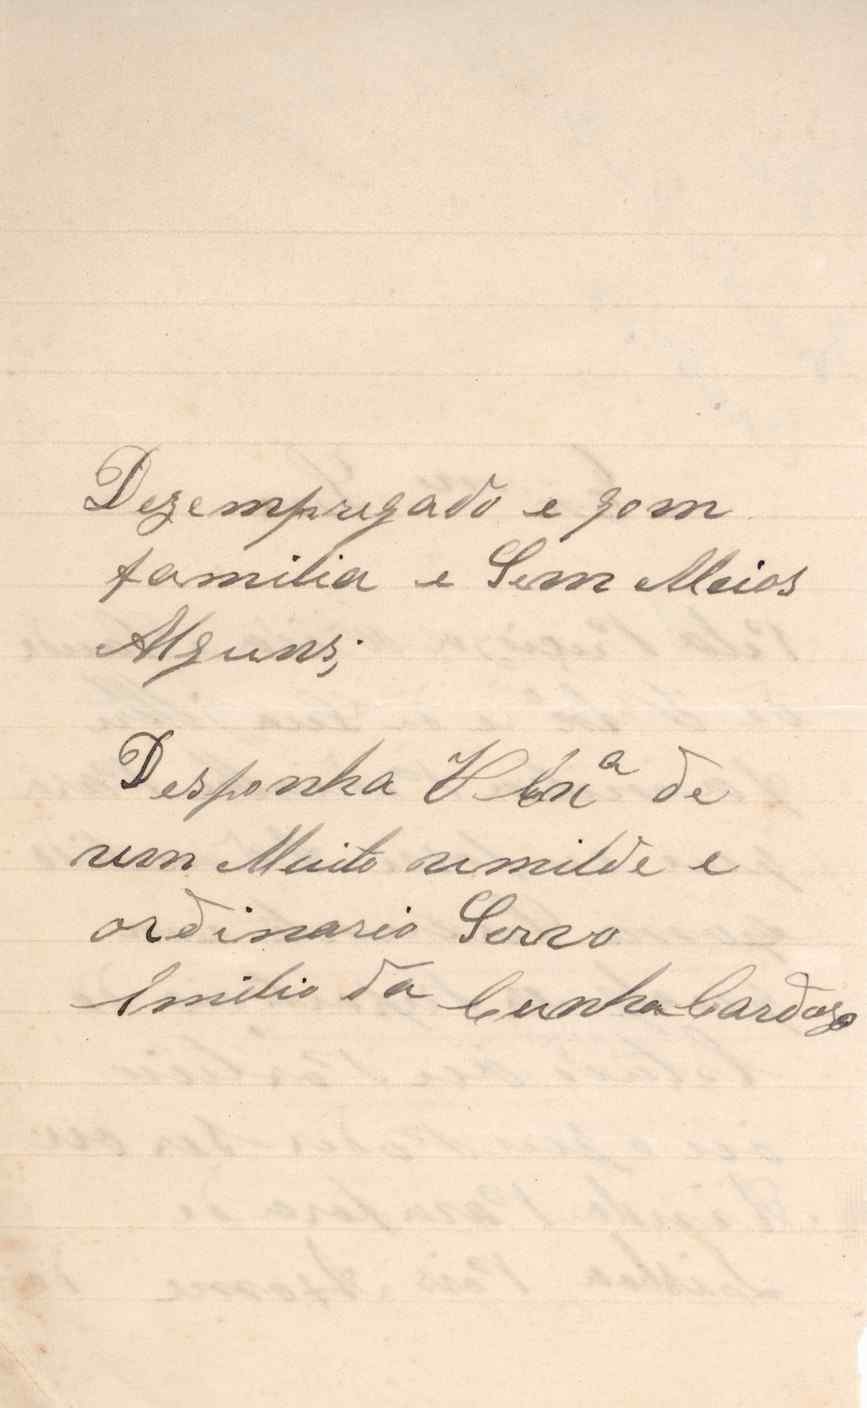 Dezempregado e gom
familia e Sem Meios
Alguns;
Desponha V Enª de
um Muito umilde e
ordinario Servo
Emilio da Cunha Cardozo